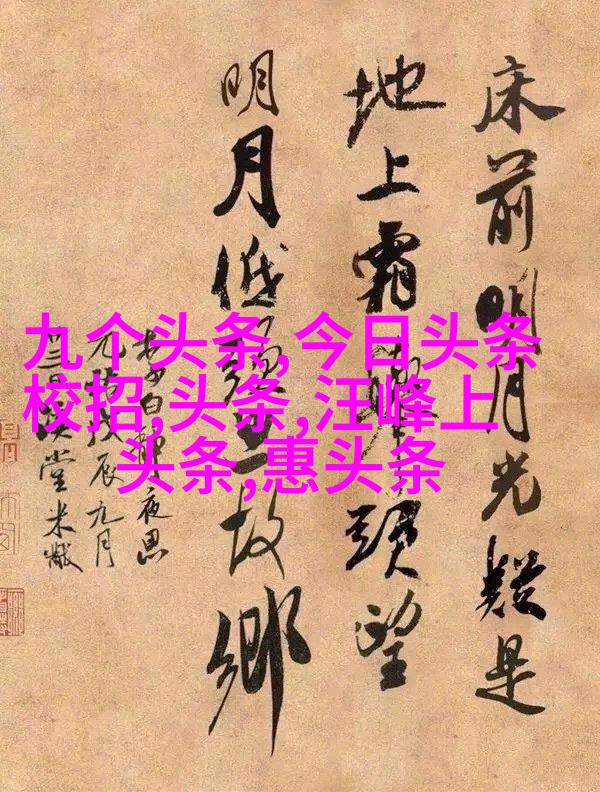 九个头条,今日头条
校招,头条,汪峰上
头条,惠头条
床前明月光疑是
地上霜舉頭望
明月低頭思故鄉
李白靜夜思
辰九月
堂米黻